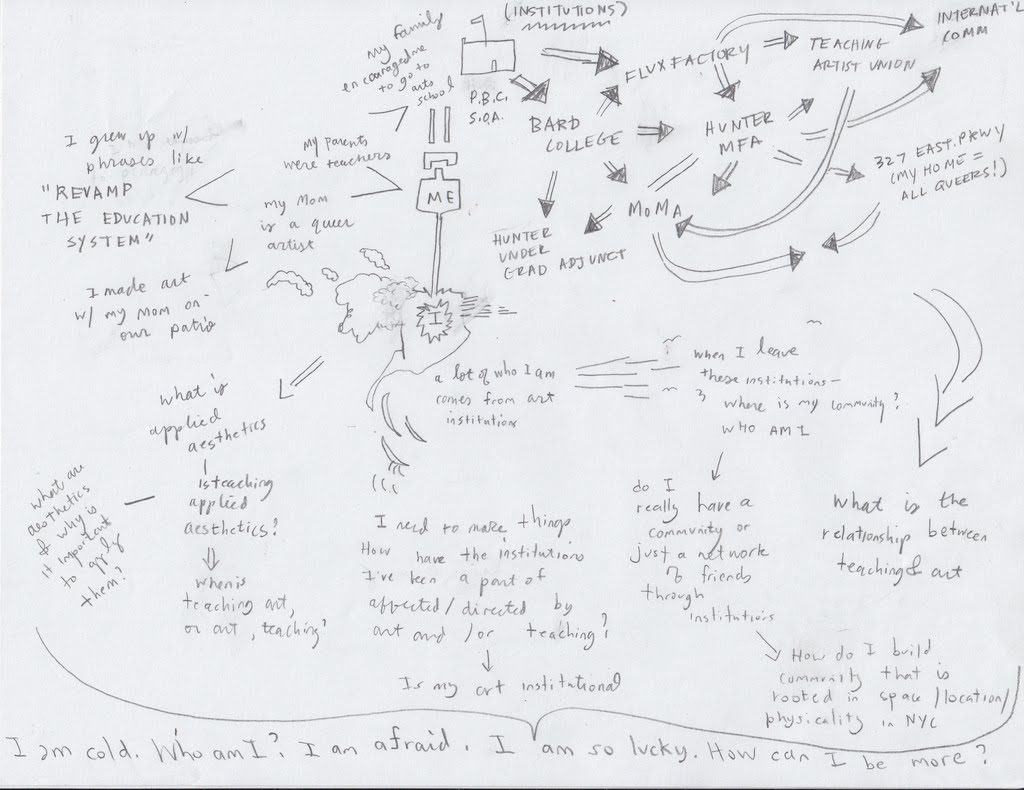 (INSTITUTIONS)
my family
encouraged me
to go to
arts
school
P.B.C.
S.O.A.
FLUX FACTORY
TEACHING
ARTIST UNION
INTERNAT'L
COMM
BARD
COLLEGE
HUNTER
MFA
327 EAST. PKWY
(MY HOME =
ALL QUEERS!)
MoMA
HUNTER
UNDER
GRAD ADJUNCT
I grew up w/
phrases like
"REVAMP
THE EDUCATION
SYSTEM"
My parents
were teachers
my Mom
is a queer
artist
ME
I made art
w/ my mom on
our patio
I
a lot of who I am
comes from art
institutions
when I leave
these institutions -
where is my community?
WHO AM I
what is
applied
aesthetics
Is teaching
applied
aesthetics?
when is
teaching art,
or art, teaching?
what are
aesthetics
& why is
it important
to apply
them?
I need to make things
How have the institutions
I've been a part of
affected/directed by
art and/or teaching?
Is my art institutional
do I
really have a
community or
just a network
of friends
through
institutions
How do I build
community that is
rooted in space/location/
physicality in NYC
What is the
relationship between
teaching & art
I am cold. Who am I? I am afraid. I am so lucky. How can I be more?